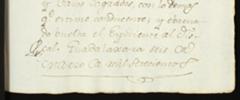 y otros Sagrados, con lo demas
q.e estime conducente; y evacua-
do buelva el Expediente al Fis-
cal. Guadalaxara seis de
Enero de mil setecientos